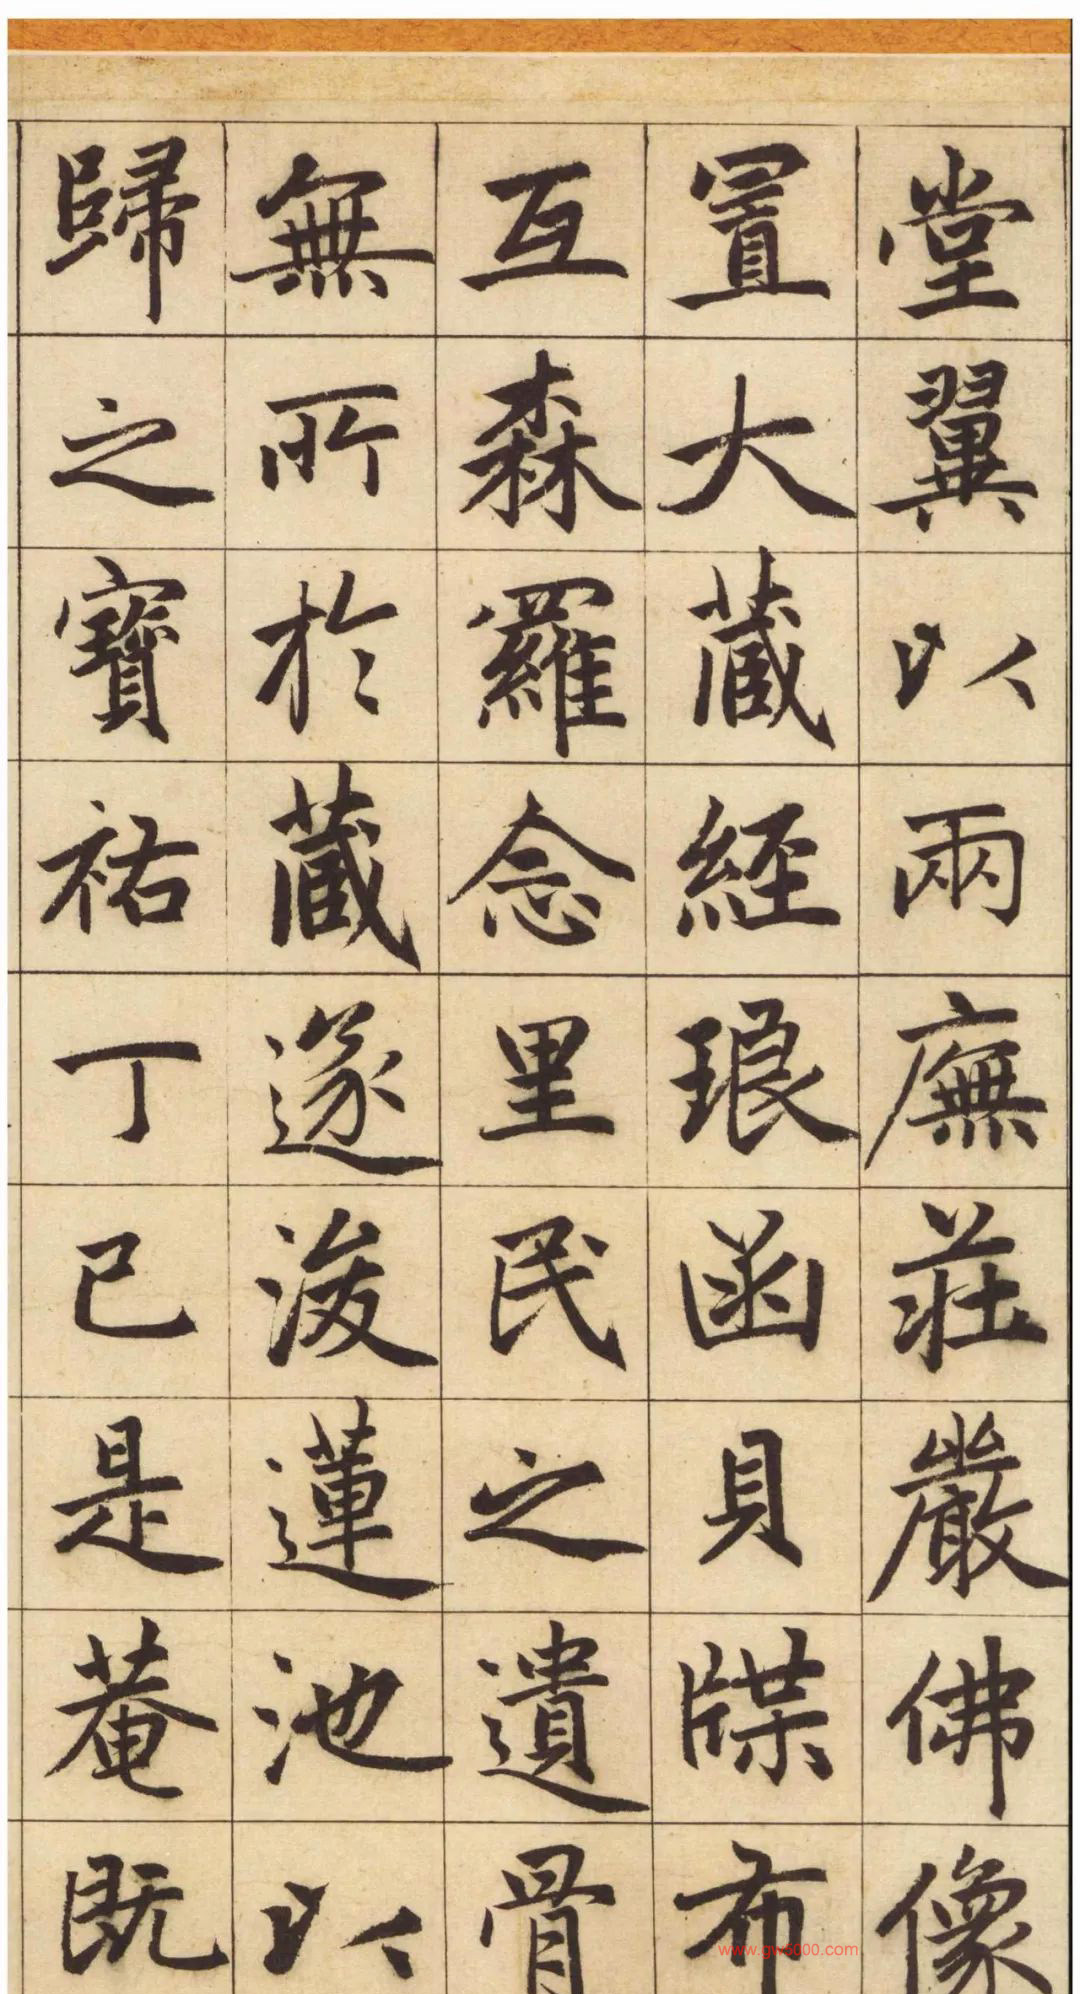 堂翼以兩廡莊嚴佛像
置大藏經琅函貝牒布
互森羅念里民之遺骨
無所於藏遂浚蓮池以
歸之寶祐丁巳是菴既
www.gw5000.com